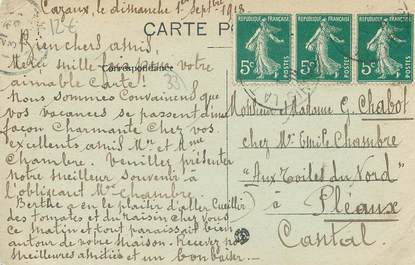 Cazaux, le dimanche 1er Septbre 1918
CARTE PO
Correspondance
Bien chers amis.
Merci mille fois pour votre
aimable Carte!
Nous sommes Convaincus que
vos vacances se passent d'une
façon Charmante Chez vos
excellents amis Mr et Mme
Chambre. Veuillez présenter
notre meilleur souvenir à
l'obligeant Mr Chambre.
Berthe a eu le plaisir d'aller Cueillir
des tomates et du raisin chez vous
ce matin et tout paraissait bien
autour de votre maison. Recevez nos
meilleures amitiés et un bon baiser
REPUBLIQUE FRANÇAISE
5c
REPUBLIQUE FRANÇAISE
5c
REPUBLIQUE FRANÇAISE
5c
Monsieur et Madame G. Chabot
chez Mr Emile Chambre
"Aux Toiles du Nord"
à Pléaux
Cantal.